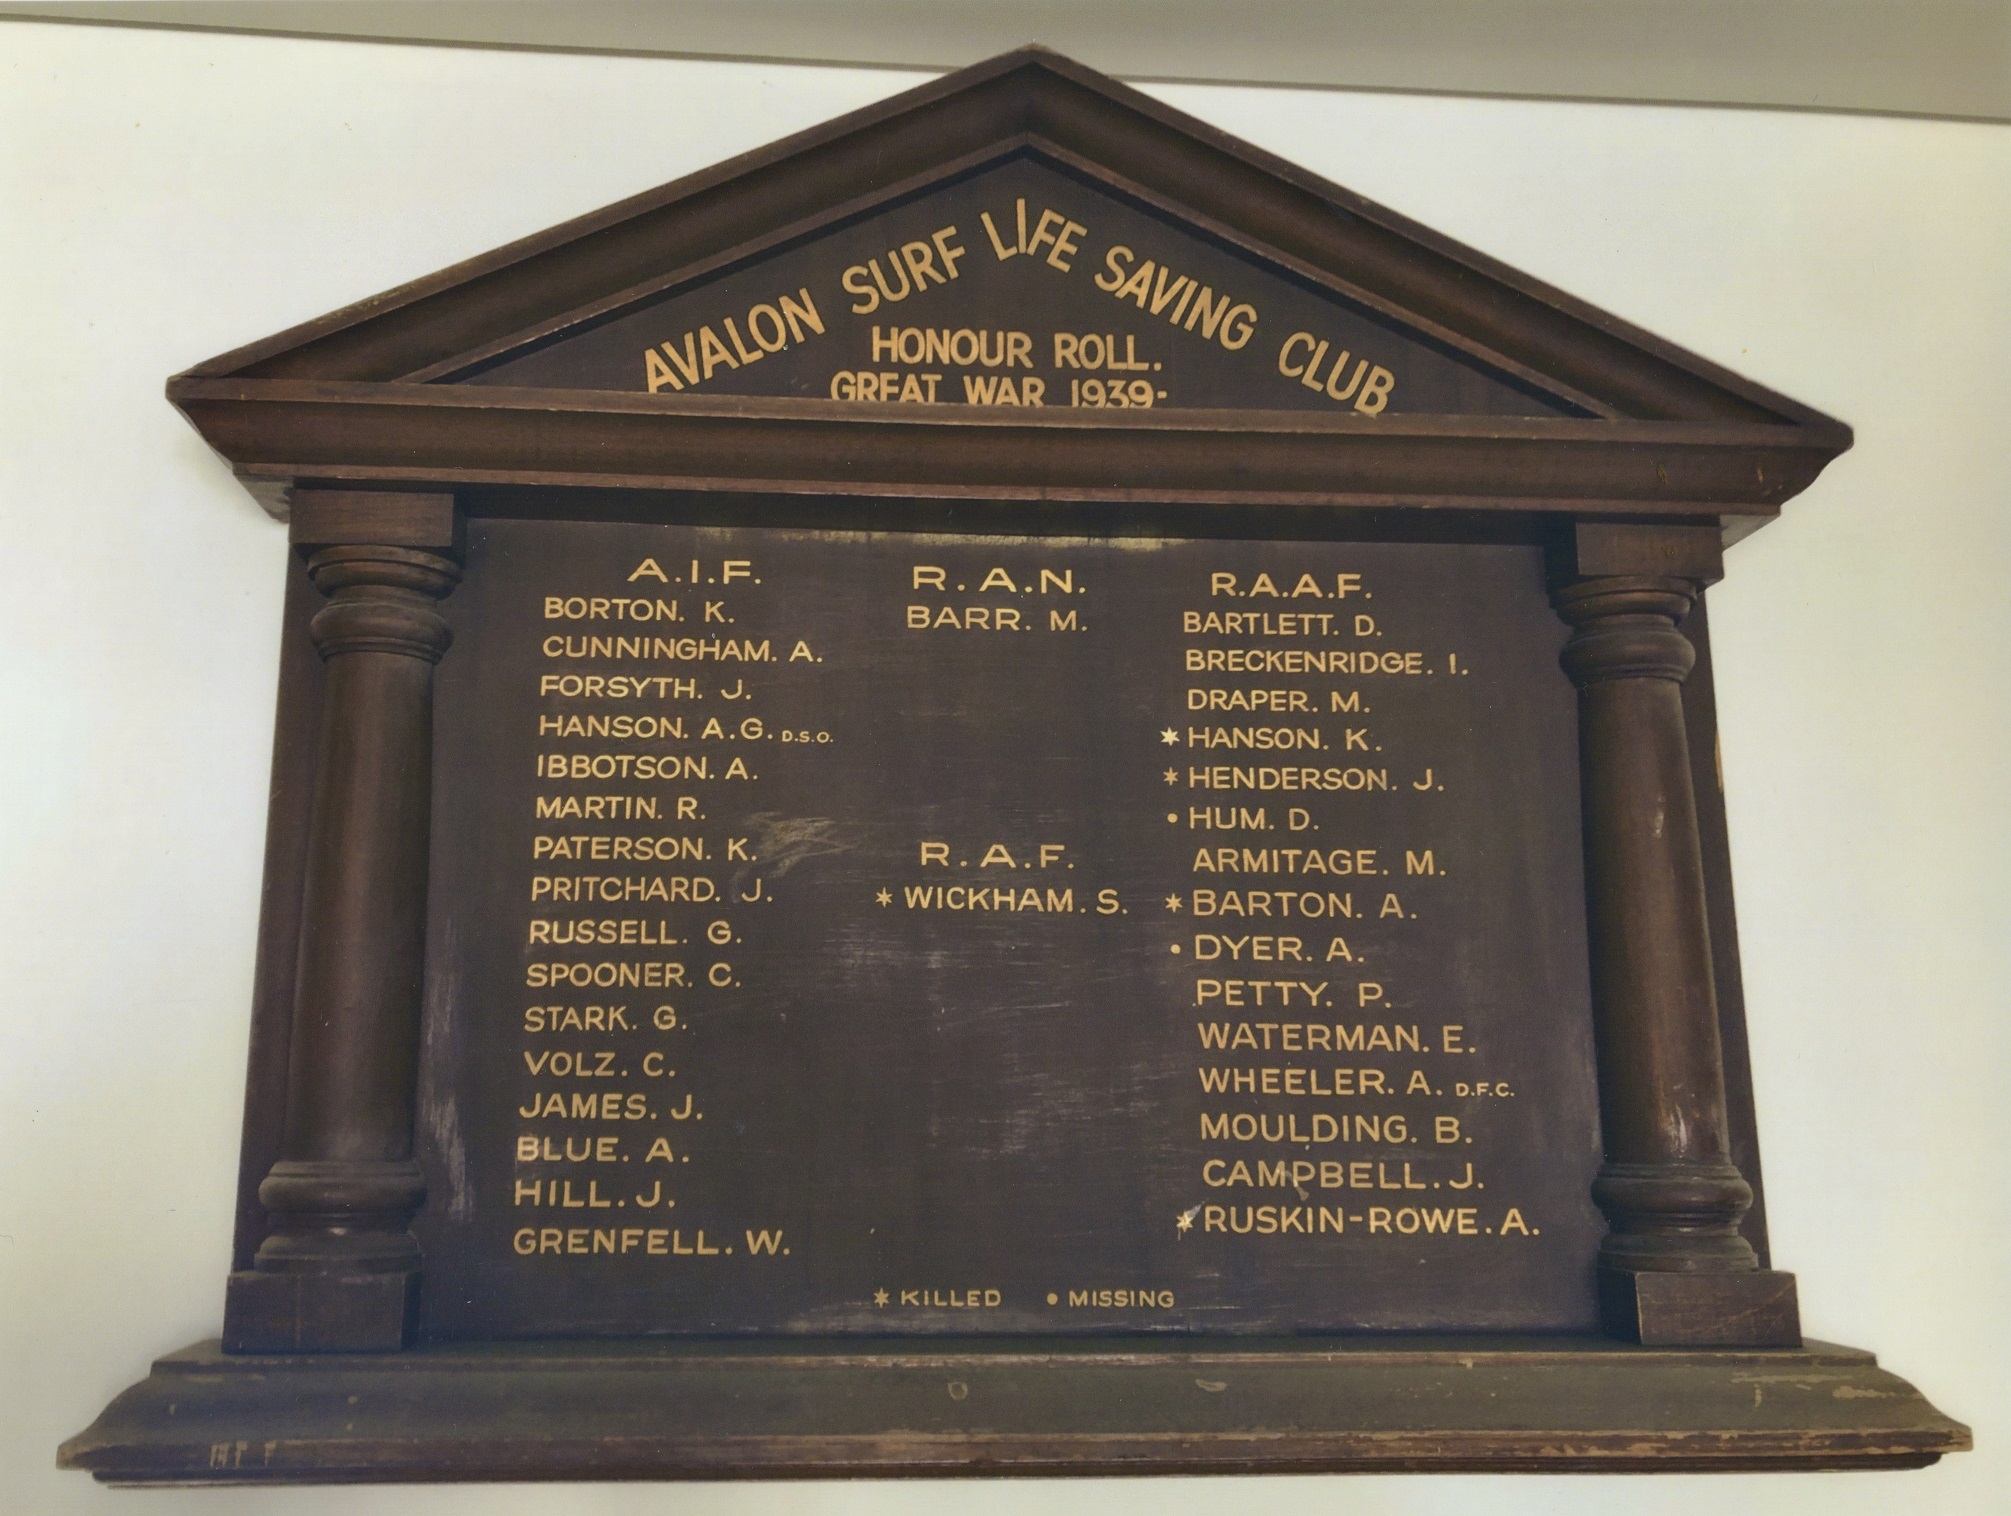 AVALON SURF LIFE SAVING CLUB
HONOUR ROLL.
GREAT WAR 1939-
A.I.F.
BORTON. K.
CUNNINGHAM. A.
FORSYTH. J.
HANSON. A.G. D.S.O.
IBBOTSON. A.
MARTIN. R.
PATERSON. K.
PRITCHARD. J.
RUSSELL. G.
SPOONER. C.
STARK. G.
VOLZ. C.
JAMES. J.
BLUE. A.
HILL. J.
GRENFELL. W.
R.A.N.
BARR. M.
R.A.F.
* WICKHAM. S.
R.A.A.F.
BARTLETT. D.
BRECKENRIDGE. I.
DRAPER. M.
* HANSON. K.
* HENDERSON. J.
• HUM. D.
ARMITAGE. M.
* BARTON. A.
• DYER. A.
PETTY. P.
WATERMAN. E.
WHEELER. A. D.F.C.
MOULDING. B.
CAMPBELL. J.
* RUSKIN-ROWE. A.
* KILLED • MISSING